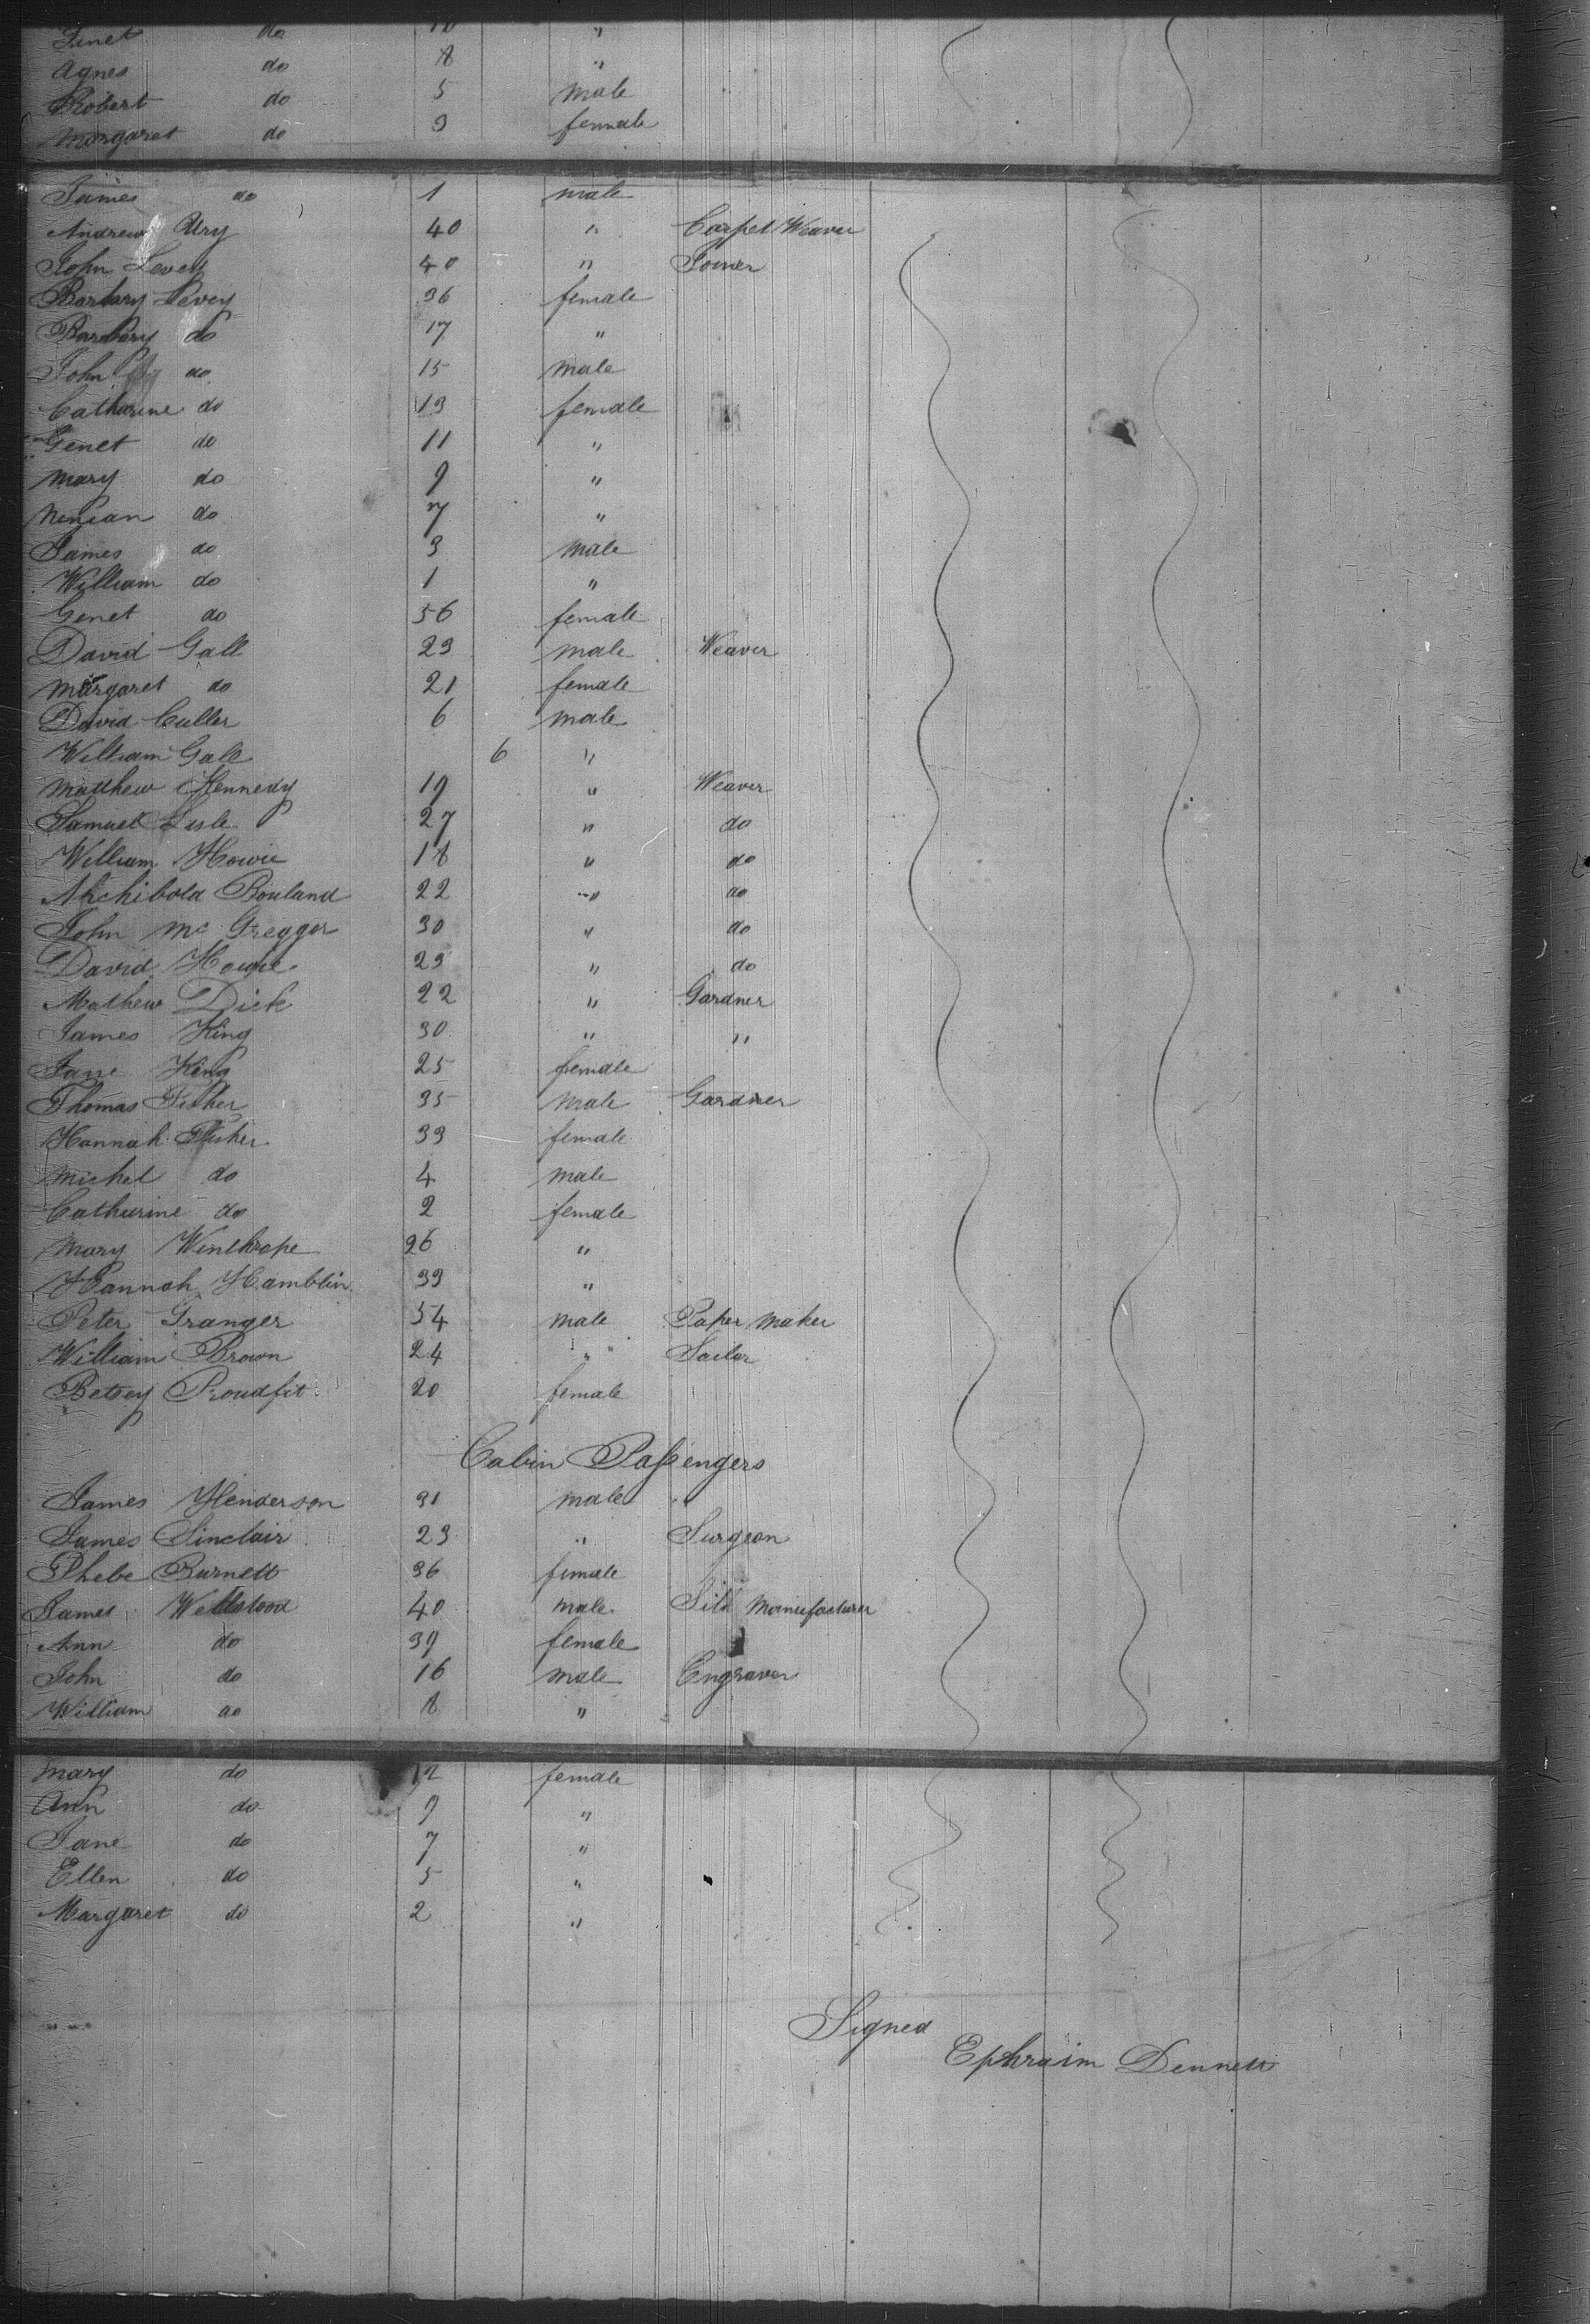 Genet do 10 "
Agnes do 8 "
Robert do 5 male
Margaret do 3 female
James do 1 male
Andrew Ury 40 " Carpet Weaver
John Levey 40 " Joiner
Barbary Levey 36 female
Barbary do 17 "
John do 15 male
Catharine do 13 female
Genet do 11 "
Mary do 9 "
Nenian do 7 "
James do 3 male
William do 1 "
Genet do 56 female
David Gall 23 male Weaver
Margaret do 21 female
David Culler 6 male
William Gall 6 "
Matthew Kennedy 19 " Weaver
Samuel Lisle 27 " do
William Howie 18 " do
Archibold Bouland 22 " do
John Mc Gregger 30 " do
David Howie 23 " do
Mathew Dick 22 " Gardner
James King 30 " "
Jane King 25 female
Thomas Fisher 35 male Gardner
Hannah Fisher 33 female
Michel do 4 male
Catharine do 2 female
Mary Winthrope 26 "
Hannah Hamblin 33 "
Peter Granger 54 male Paper Maker
William Brown 24 " Sailor
Betsey Proudfit 20 female
Cabin Passengers
James Henderson 31 male "
James Sinclair 23 " Surgeon
Phebe Burnett 36 female
James Wellstood 40 male Silk Manufacturer
Ann do 39 female
John do 16 male Engraver
William do 18 "
Mary do 12 female
Ann do 9 "
Jane do 7 "
Ellen do 5 "
Margaret do 2 "
Signed
Ephraim Dennett